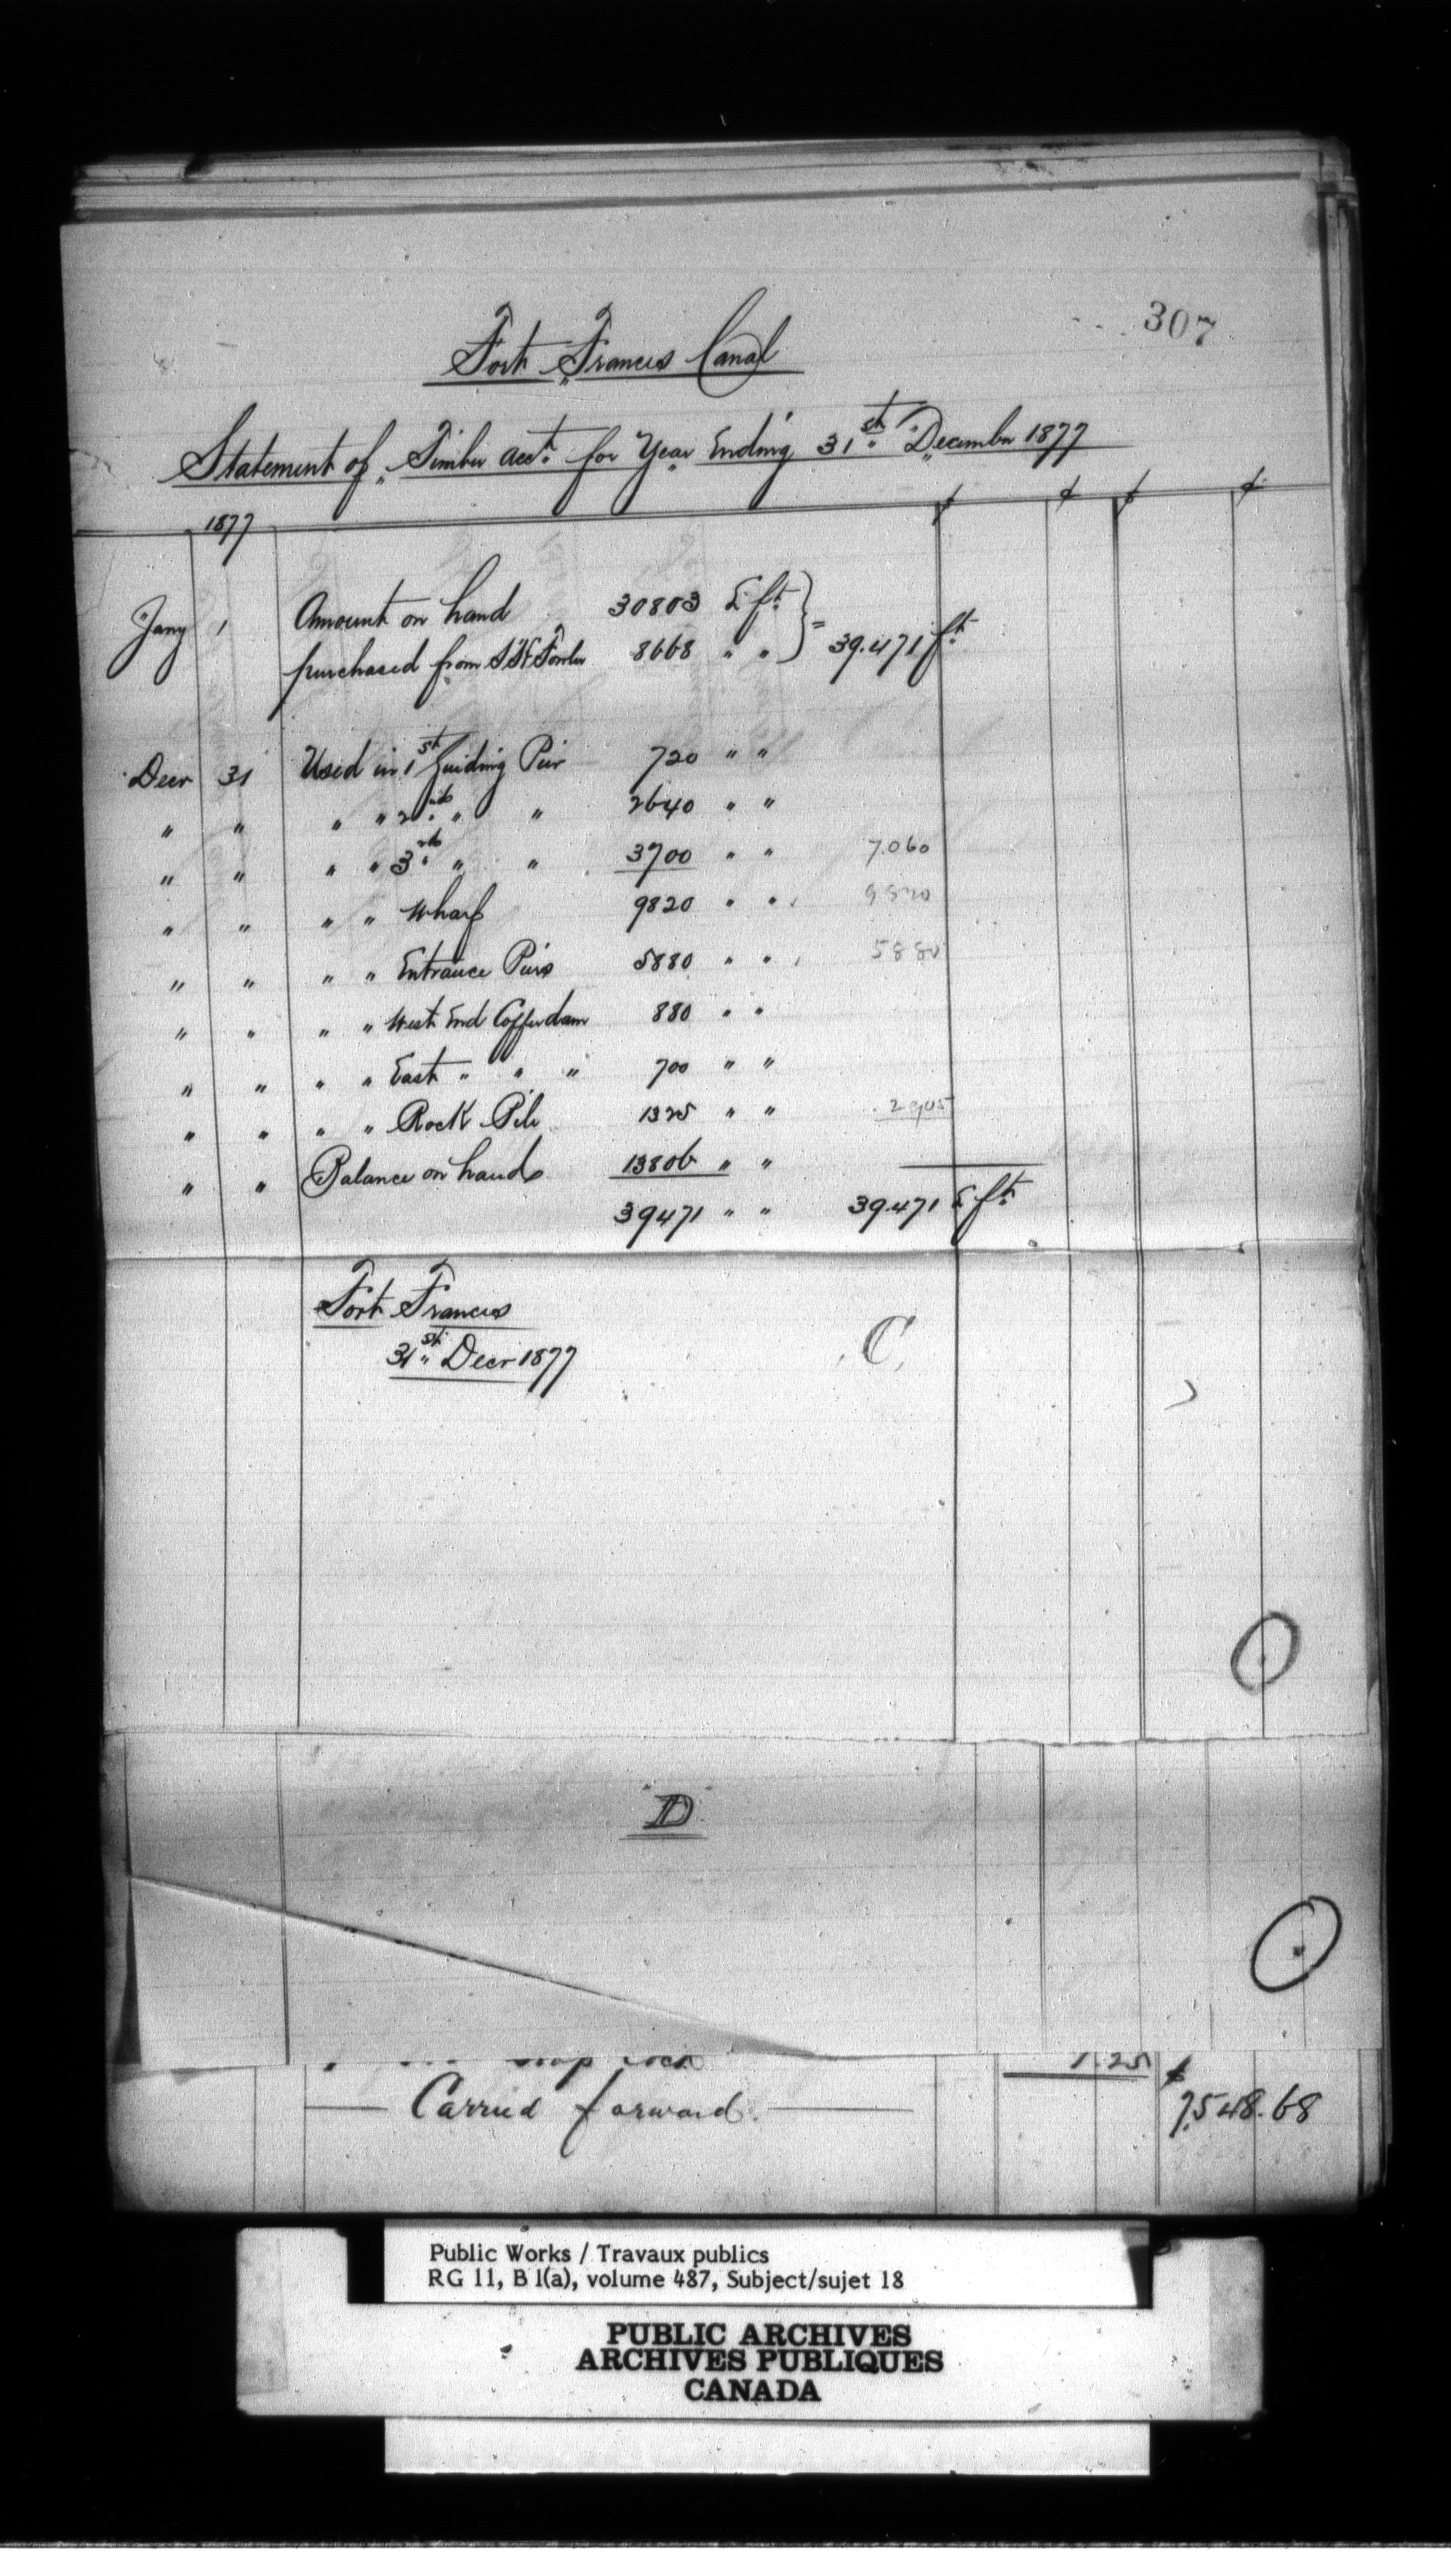 307
Fort Francis Canal
Statement of Timber acct. for Year Ending 31st December 1877
$ ¢ $ ¢
1877
Jany 1 Amount on hand 30803 L ft
purchased from S H Fowler 8668 " " } = 39.471 ft
Decr 31 Used in 1st Guiding Pier 720 " "
" " " " 2nd " " 2640 " "
" " " " 3rd " " 3700 " " 7.060
" " " " Wharf 9820 " " 9820
" " " " Entrance Piers 5880 " " 5880
" " " " West End Cofferdam 880 " "
" " " " East " " " 700 " "
" " " " Rock Pile 1325 " " 2905
" " Balance on hand 13806 " "
39471 " " 39.471 L ft
Fort Francis
31st Decr 1877
C
D
1.25
Carried forward $ 7,548.68
Public Works / Travaux publics
RG 11, B 1(a), volume 487, Subject/sujet 18
PUBLIC ARCHIVES
ARCHIVES PUBLIQUES
CANADA